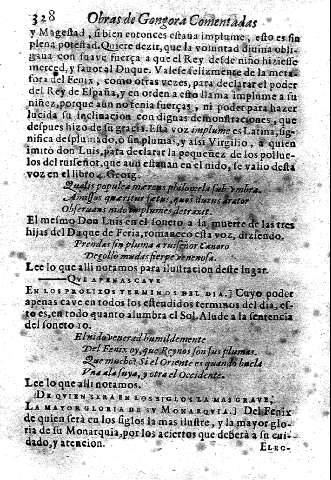 328 Obras de Gongora Comentadas
y Magestad, si bien entonces estaua implume, esto es sin
plena potestad. Quiere dezir, que la voluntad diuina obli-
gaua con suaue fuerça a que el Rey desde niño hiziesse
merced, y fauor al Duque. Valese felizmente de la meta-
fora del Fenix, como otras vezes, para declarar el poder
del Rey de España, y en orden a esto llama implume a su
niñez, porque aun no tenia fuerças, ni poder para hazer
lucida su inclinacion con dignas demostraciones, que
despues hizo de su gracia. Esta voz implume es Latina, sig-
nifica desplumado, o sin plumas, y assi Virgilio, a quien
imitò don Luis, para declarar la pequeñez de los pollue-
los del ruiseñor, que aun estauan en el nido, se valio desta
voz en el libro 4. Georg.
Qualis populea mœrens philomela sub vmbra.
Amissos quæritur fœtus, quos durus arator
Obseruans nido implumes detraxit.
El mesmo Don Luis en el soneto a la muerte de las tres
hijas del Duque de Feria, romanceo esta voz, diziendo.
Prendas sin pluma a ruiseñor canoro
Degollò mudas sierpe venenosa.
Lee lo que alli notamos para ilustracion deste lugar.
QVE APENAS CAVE
EN LOS PROLIXOS TERMINOS DEL DIA.] Cuyo poder
apenas cave en todos los estendidos terminos del dia, es-
to es, en todo quanto alumbra el Sol. Alude a la sentencia
del soneto 10.
El nido venerad humildemente
Del Fenix oy, que Reynos son sus plumas.
Que mucho? Si el Oriente es quando buela
Vna ala suya, y otra el Occidente.
Lee lo que alli notamos.
[DE QVIEN SERA EN LOS SIGLOS LA MAS GRAVE,
LA MAYOR GLORIA DE SV MONARQVIA.] Del Fenix
de quien será en los siglos la mas ilustre, y la mayor glo-
ria de su Monarquia, por los aciertos que deberá a su cui-
dado, y atencion.
ELEC-